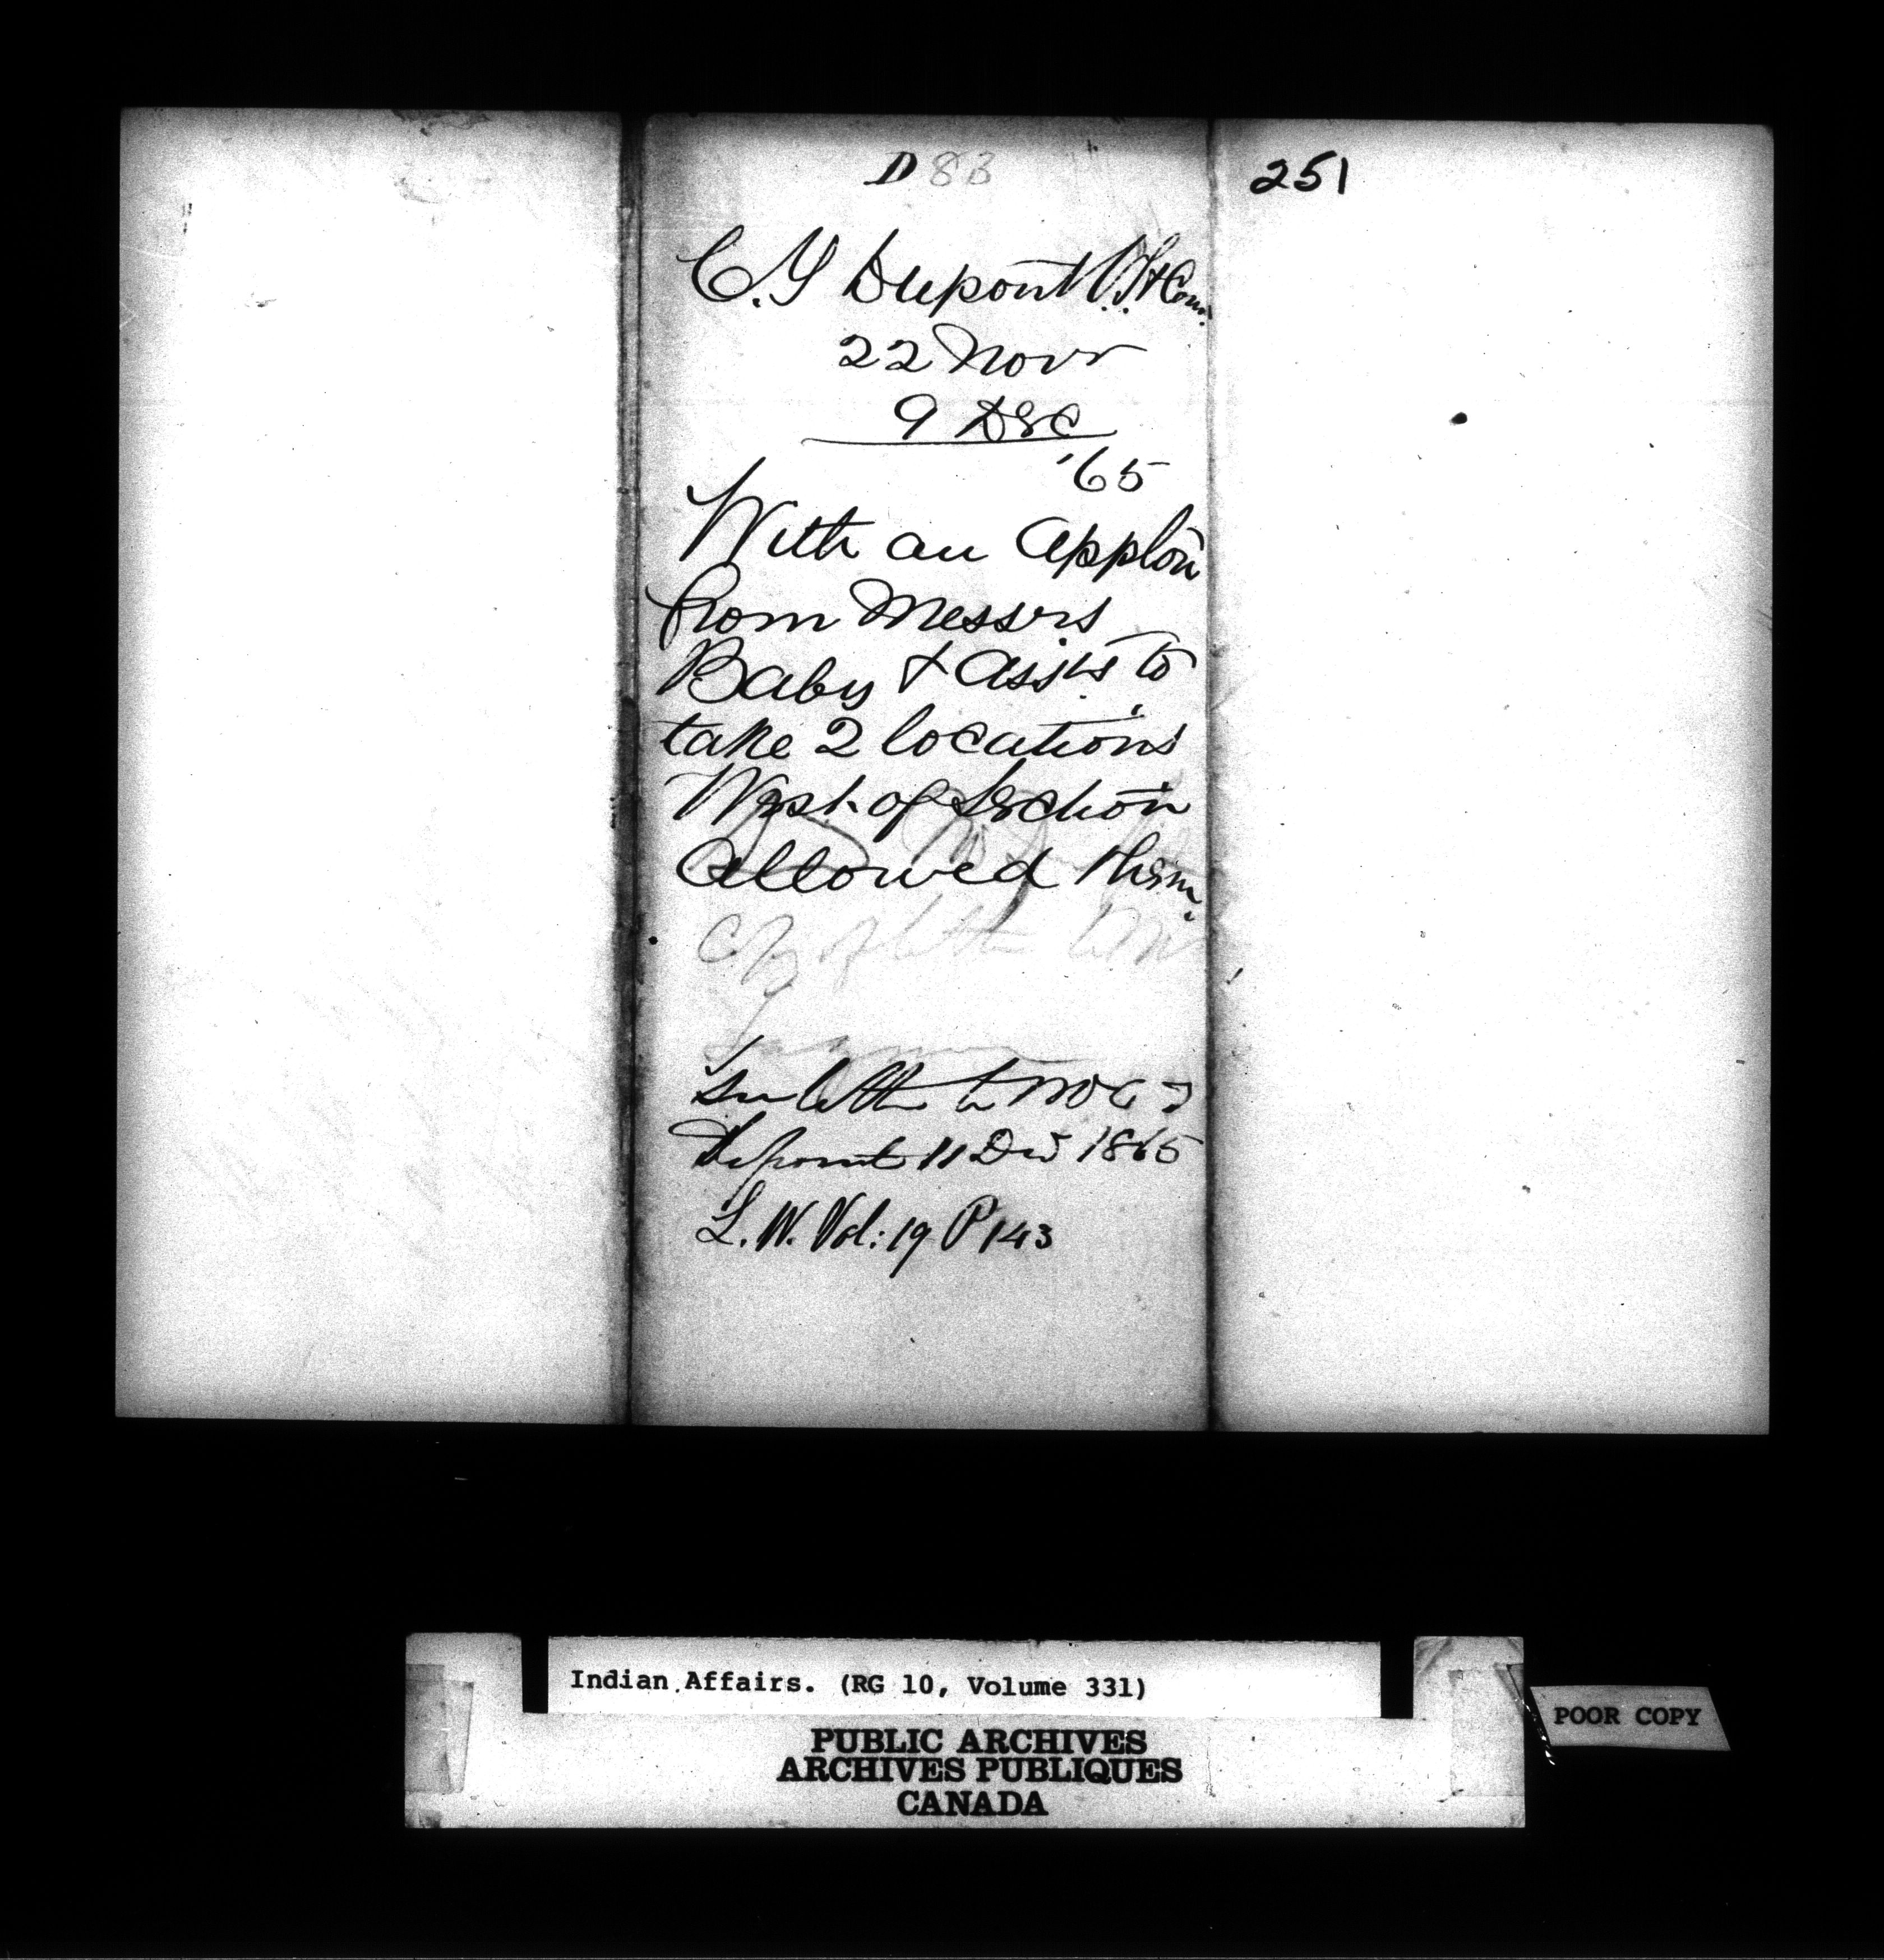 D 83
251
C. T Dupont V. S. & Com.
22 Novr
9 Dec
'65
With an applon
from Messrs
Baby & assts to
take 2 locations
West of Section
allowed them.
Copy of letter to Mr
See letter to Mr C T
Dupont 11 Decr 1865
L.W. Vol: 19 P 143
Indian Affairs. (RG 10, Volume 331)
PUBLIC ARCHIVES
ARCHIVES PUBLIQUES
CANADA
POOR COPY